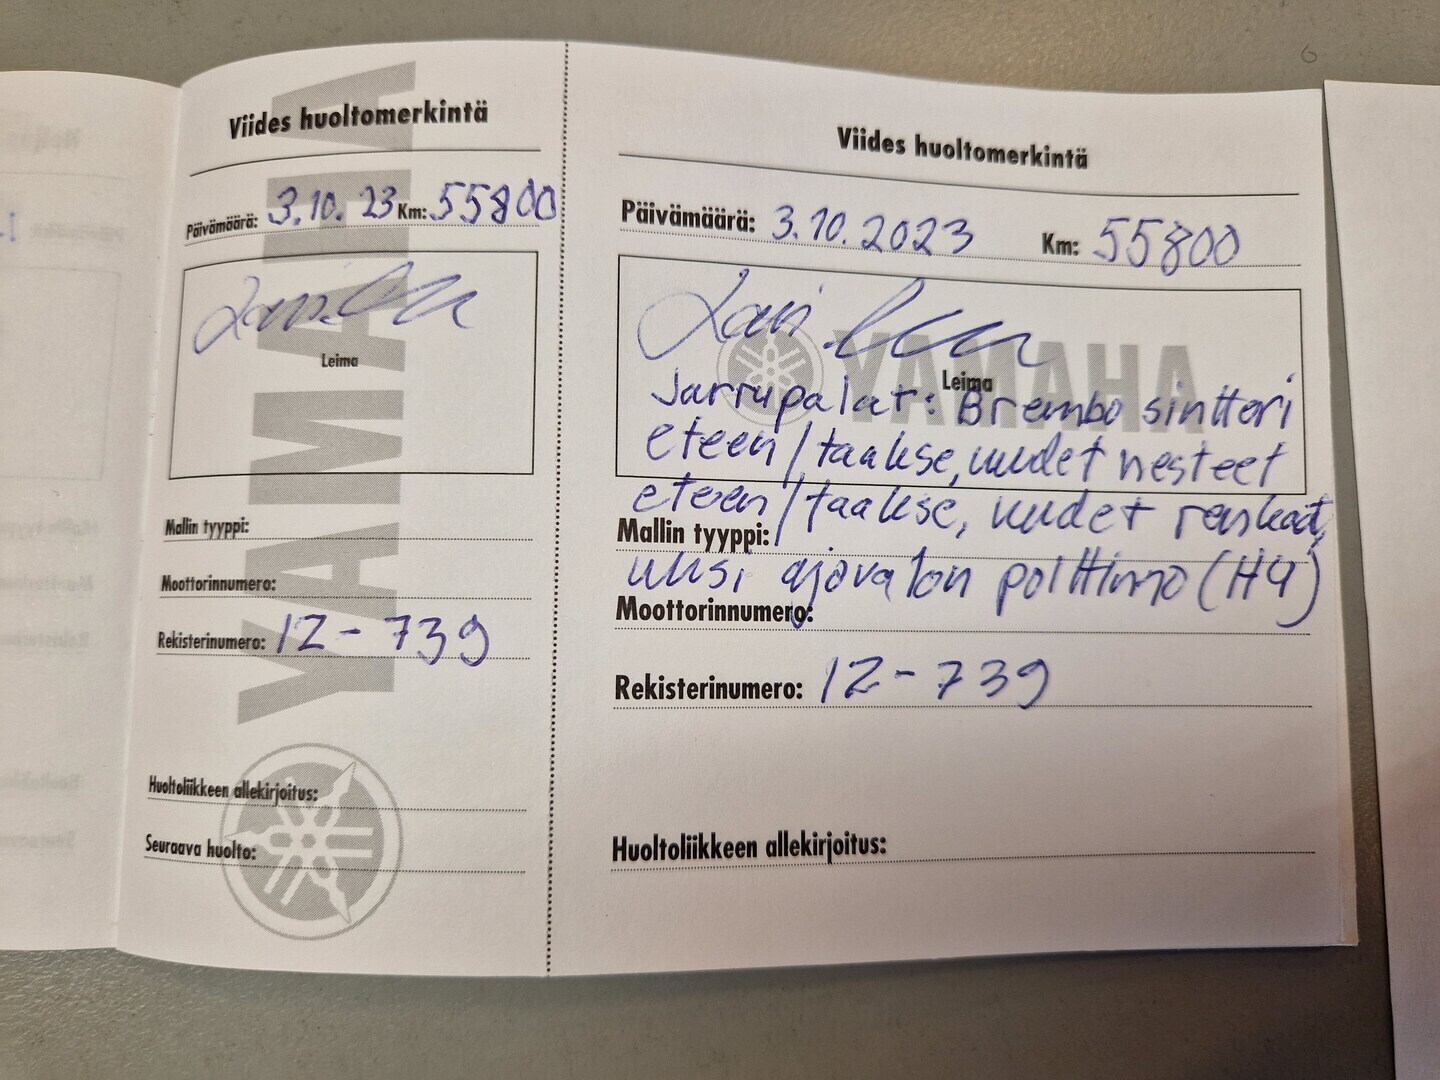 Viides huoltomerkintä
Päivämäärä: 3.10.23 Km: 55800
Leima
Mallin tyyppi:
Moottorinnumero:
Rekisterinumero: 12-739
Huoltoliikkeen allekirjoitus:
Seuraava huolto:
YAMAHA
Viides huoltomerkintä
Päivämäärä: 3.10.2023 Km: 55800
YAMAHA
Leima
Jarrupalat: Brembo sintteri
eteen/taakse, uudet nesteet
eteen/taakse, uudet renkaat,
Mallin tyyppi:
uksi ajovalon polttimo (H4)
Moottorinnumero:
Rekisterinumero: 12-739
Huoltoliikkeen allekirjoitus: